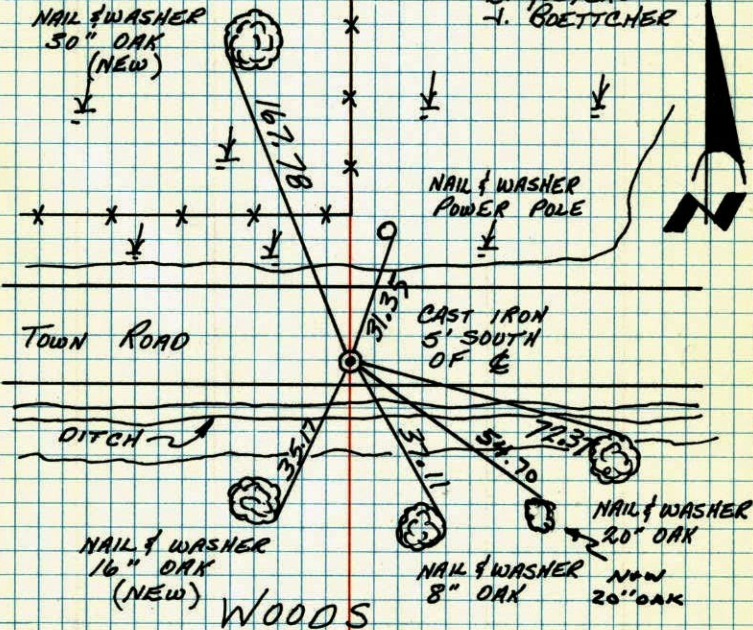 NAIL & WASHER
30" OAK
(NEW)
J. BOETTCHER
167.78
NAIL & WASHER
POWER POLE
N
31.35
CAST IRON
5' SOUTH
OF ℄
TOWN ROAD
DITCH
35.17
37.11
54.70
72.37
NAIL & WASHER
16" OAK
(NEW)
NAIL & WASHER
8" OAK
NAIL & WASHER
20" OAK
NOW
20" OAK
WOODS